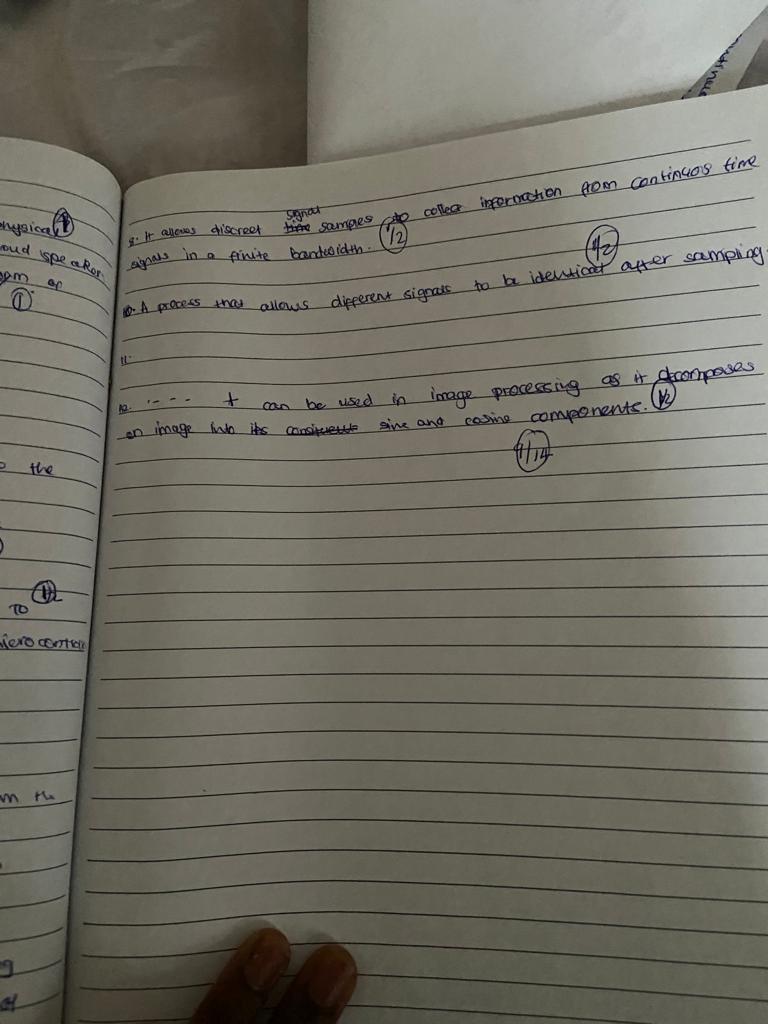 physical 1
oud speaker.
em of
1
o the
TO 1/2
microcontr
m the
g
8. It allows discreet signal time samples to collect information from continuos time
signals in a finite bandwidth. 1/2
1/2
10. A process that allows different signals to be identical after sampling.
11.
12. ---- t can be used in image processing as it dcomposes
an image into its consituents sine and cosine components. 1/2
9/14